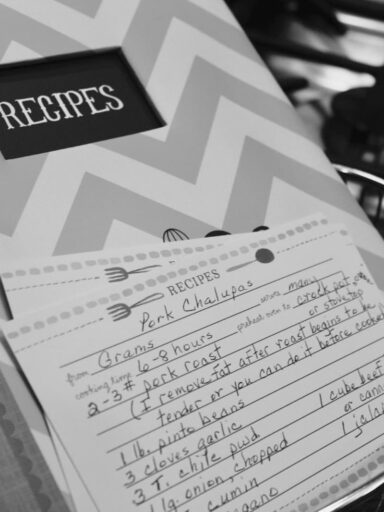 RECIPES
RECIPES
Pork Chalupas
serves many
from Grams preheat oven to crock pot
or stovetop
cooking time 6-8 hours
2-3# pork roast
(I remove fat after roast begins to be
tender or you can do it before cooked
1 lb. pinto beans
3 cloves garlic 1 cube beef
3 T. chile pwd. or cann
1 lg. onion, chopped 1 jala
cumin